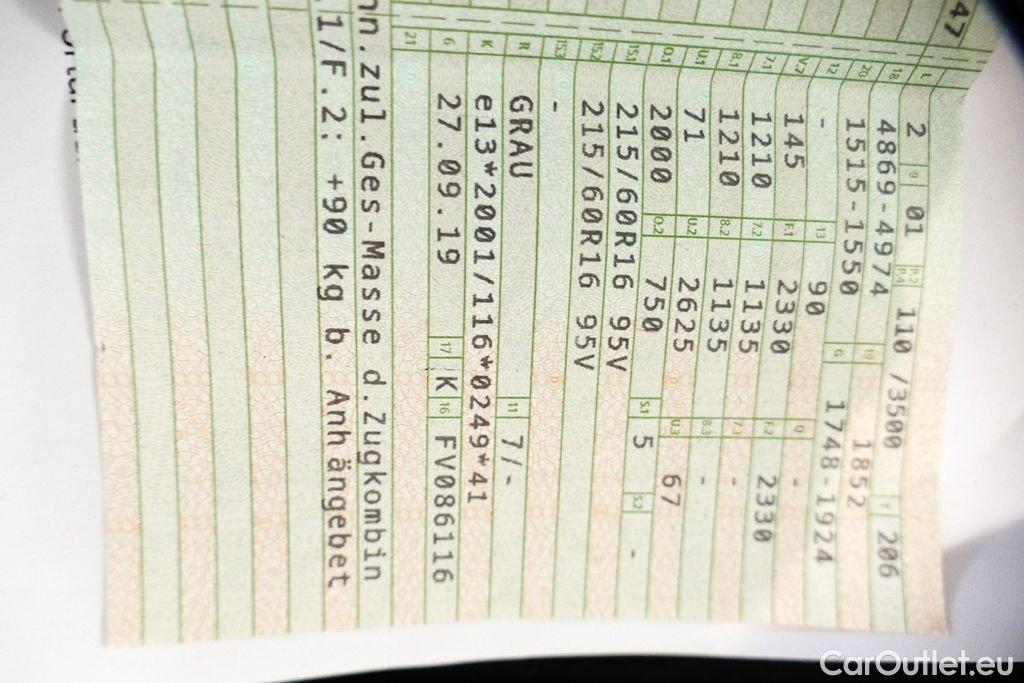 47
L 2 9 01 P.2 P.4 110 /3500 T 206
18 4869-4974 19 1852
20 1515-1550 G 1748-1924
12 - 13 90 Q -
V.7 145 F.1 2330 F.2 2330
7.1 1210 7.2 1135 7.3 -
8.1 1210 8.2 1135 8.3 -
U.1 71 U.2 2625 U.3 67
O.1 2000 O.2 750 S.1 5 S.2 -
15.1 215/60R16 95V
15.2 215/60R16 95V
15.3 -
R GRAU 11 7/-
K e13*2001/116*0249*41
6 27.09.19 17 K 16 FV086116
21
nn.zul.Ges-Masse d.Zugkombin
.1/F.2: +90 kg b. Anhängebet
CarOutlet.eu